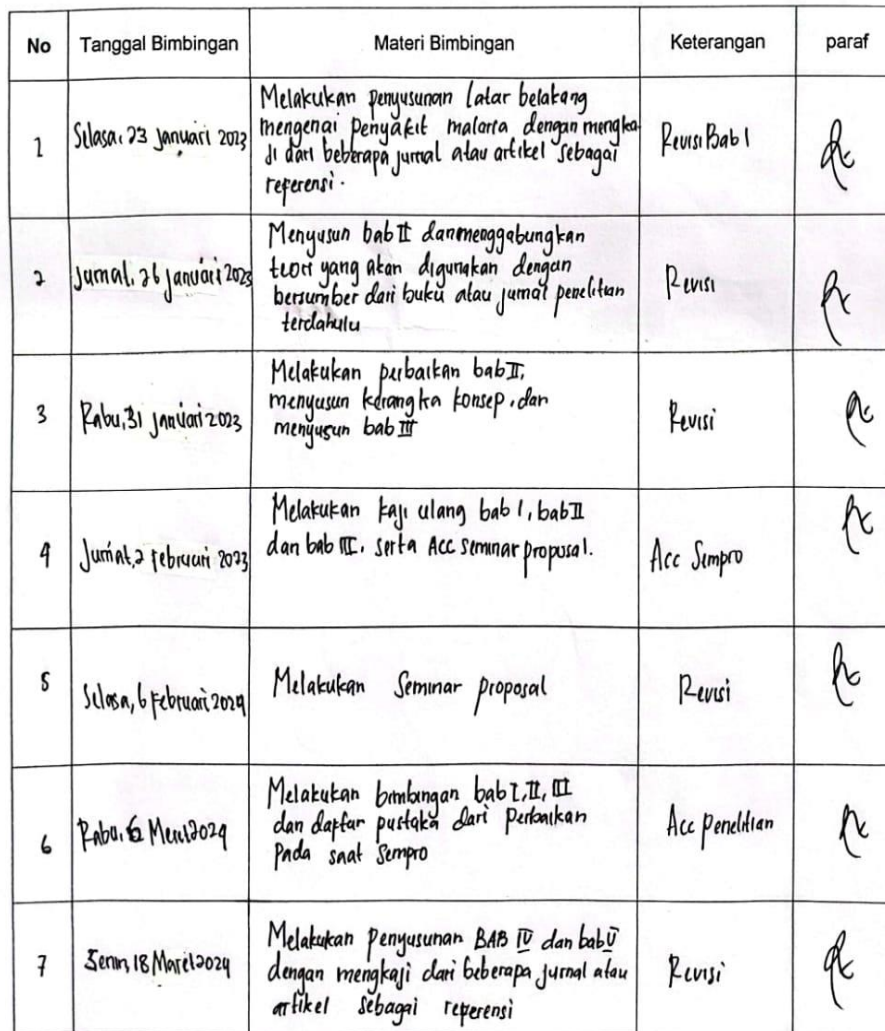 No Tanggal Bimbingan Materi Bimbingan Keterangan paraf
1 Selasa, 23 Januari 2023 Melakukan penyusunan latar belakang
mengenai penyakit malaria dengan mengka
ji dari beberapa jurnal atau artikel sebagai
referensi.
Revisi Bab 1
2 Jumat, 26 Januari 2023 Menyusun bab II dan menggabungkan
teori yang akan digunakan dengan
bersumber dari buku atau jurnal penelitian
terdahulu
Revisi
3 Rabu, 31 Januari 2023 Melakukan perbaikan bab II,
menyusun kerangka konsep, dan
menyusun bab III
Revisi
4 Jumat, 2 februari 2023 Melakukan kaji ulang bab 1, bab II
dan bab III. serta Acc seminar proposal.
Acc Sempro
5 Selasa, 6 Februari 2024 Melakukan Seminar proposal Revisi
6 Rabu, 6 Maret 2024 Melakukan bimbingan bab I, II, III
dan daftar pustaka dari Perbaikan
Pada saat Sempro
Acc penelitian
7 Senin, 18 Maret 2024 Melakukan Penyusunan BAB IV dan bab V
dengan mengkaji dari beberapa jurnal atau
artikel sebagai referensi
Revisi